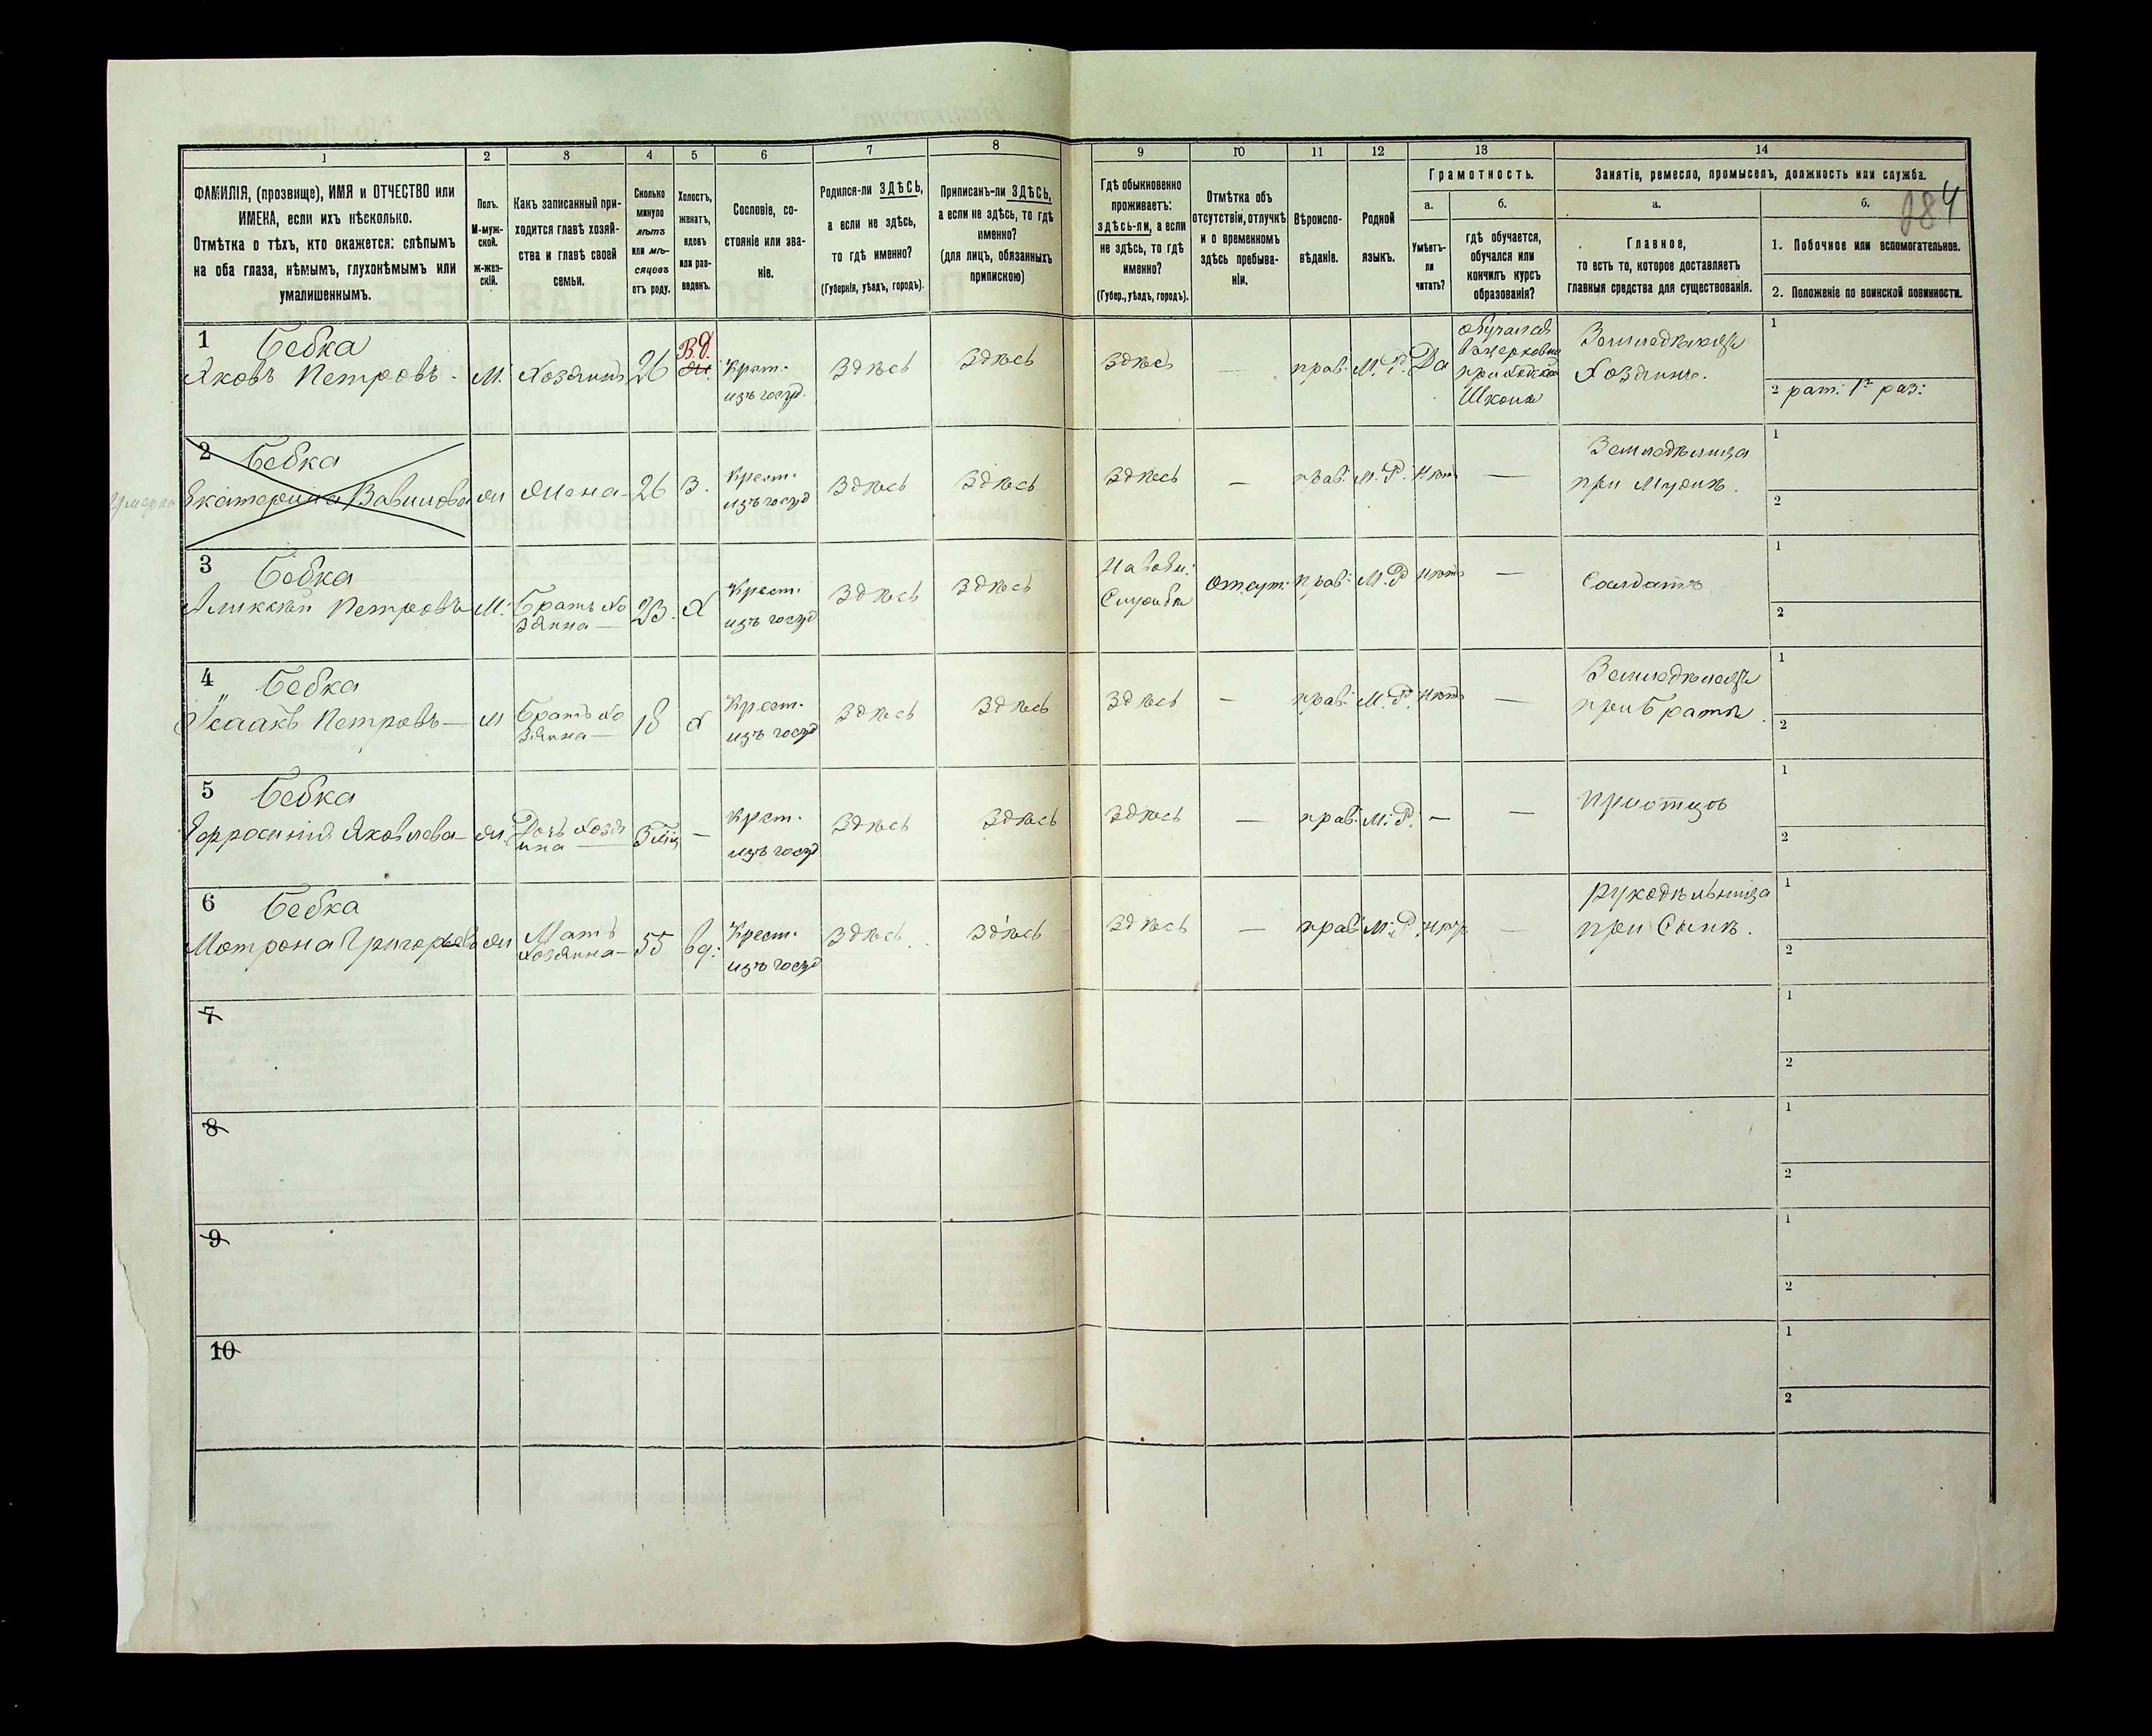 1
2
3
4
5
6
7
8
9
10
11
12
13
14
ФАМИЛІЯ, (прозвище), ИМЯ и ОТЧЕСТВО или
ИМЕНА, если ихъ нѣсколько.
Отмѣтка о тѣхъ, кто окажется: слѣпымъ
на оба глаза, нѣмымъ, глухонѣмымъ или
умалишеннымъ.
Полъ.
М-муж-
ской.
Ж-жен-
скій.
Какъ записанный при-
ходится главѣ хозяй-
ства и главѣ своей
семьи.
Сколько
минуло
лѣтъ
или мѣ-
сяцевъ
отъ роду.
Холостъ,
женатъ,
вдовъ
или раз-
веденъ.
Сословіе, со-
стояніе или зва-
ніе.
Родился-ли ЗДѢСЬ,
а если не здѣсь,
то гдѣ именно?
(Губернія, уѣздъ, городъ).
Приписанъ-ли ЗДѢСЬ,
а если не здѣсь, то гдѣ
именно?
(для лицъ, обязанныхъ
припискою)
Гдѣ обыкновенно
проживаетъ:
здѣсь-ли, а если
не здѣсь, то гдѣ
именно?
(Губер., уѣздъ, городъ).
Отмѣтка объ
отсутствіи, отлучкѣ
и о временномъ
здѣсь пребыва-
ніи.
Вѣроиспо-
вѣданіе.
Родной
языкъ.
Грамотность.
а.
Умѣетъ-
ли
читать?
б.
гдѣ обучается,
обучался или
кончилъ курсъ
образованія?
Занятіе, ремесло, промыселъ, должность или служба.
а.
Главное,
то есть то, которое доставляетъ
главныя средства для существованія.
б.
1. Побочное или вспомогательное.
2. Положеніе по воинской повинности.
1 Бебка
Яковъ Петровъ -
М.
Хозяинъ
26
Вд.
Крест.
изъ госуд.
Здѣсь
Здѣсь
Здѣсь
—
прав.
М. Р.
Да
обучался
въ церковно
приходской
Школѣ
Земледѣлецъ
Хозяинъ.
1
2 рат. 1го раз:
Умерла
2 Бебка
Екатерина Вавилова
Ж
Жена
26
З.
Крест.
изъ госуд
Здѣсь
Здѣсь
Здѣсь
—
прав.
М. Р.
Нѣтъ
—
Земледѣлица
при Мужѣ.
1
2
3 Бебка
Аликсѣй Петровъ
М.
Братъ Хо
зяина —
23.
Х
Крест.
изъ госуд
Здѣсь
Здѣсь
На воен:
Службѣ
Отсут:
прав:
М. Р
Нѣтъ
—
Солдатъ
1
2
4 Бебка
Исаакъ Петровъ —
М
Братъ Хо
зяина —
18
Х
Крест.
изъ госуд
Здѣсь
Здѣсь
Здѣсь
—
прав:
М. Р.
Нѣтъ
—
Земледѣлецъ
при Братѣ.
1
2
5 Бебка
Ефросинія Яковлева —
Ж.
Дочь Хозя
ина —
—
Крест.
изъ госуд
Здѣсь
Здѣсь
Здѣсь
—
прав:
М. Р.
—
—
При отцѣ
1
2
6 Бебка
Мотрона Григорьева
Ж
Мать
Хозяина —
55
Вд:
Крест.
изъ госуд
Здѣсь
Здѣсь
Здѣсь
—
прав:
М. Р.
Нѣтъ
—
рукодѣльница
при Сынѣ.
1
2
7
1
2
8
1
2
9
1
2
10
1
2